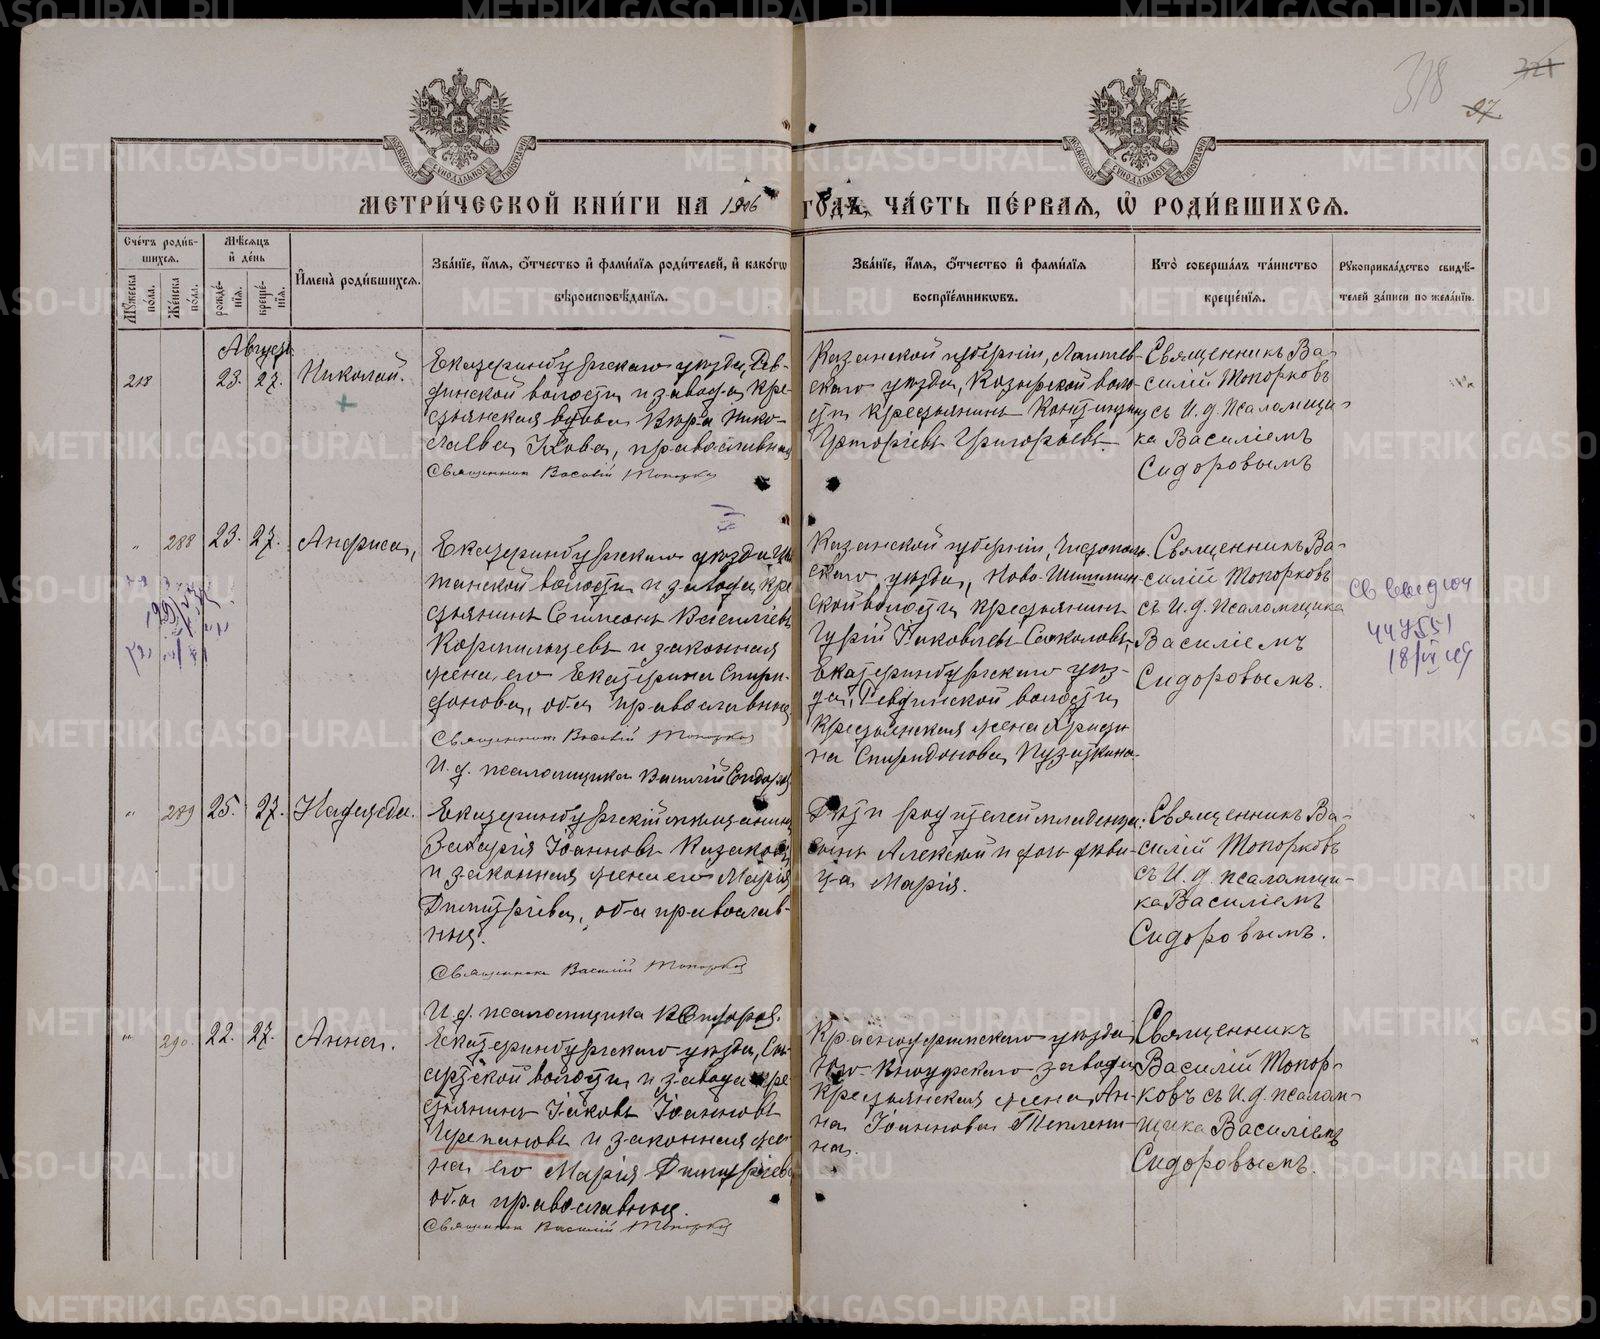 318
321
97
МЕТРИ́ЧЕСКОЙ КНИ́ГИ НА 1906 ГО́ДЪ, ЧА́СТЬ ПЕ́РВАЯ, Ѽ РОДИ́ВШИХСЯ.
Сче́тъ роди́вшихся.
Мꙋ́жеска по́ла.
Же́нска по́ла.
Мѣ́сяцъ и҆ де́нь
рожде́нїѧ.
креще́нїѧ.
И҆мена̀ роди́вшихсѧ.
Зва́нїе, и҆́мѧ, ѻ҆́тчество и҆ фами́лїѧ роди́телей, и҆ како́гѡ
вѣроисповѣ́данїѧ.
Зва́нїе, и҆́мѧ, ѻ҆́тчество и҆ фами́лїѧ
воспрїе́мниковъ.
Кто̀ соверша́лъ та́инство
креще́нїѧ.
Рꙋкоприкла́дство свидѣ́-
телей за́писи по жела́нїю.
Августъ
218
23. 27.
Николай.
Екатеринбургскаго уѣзда, Рев-
динской волости и завода, кре-
стьянская вдова Нико-
лаева православная
Священникъ Василій Топорковъ
Казанской губерніи, Лаишев-
скаго уѣзда, волости
крестьянинъ
Григорьевъ.
Священникъ Ва-
силій Топорковъ
съ И. д. псаломщи-
ка Василіемъ
Сидоровымъ
" 288 23. 27.
Анфиса,
Екатеринбургскаго уѣзда,
волости и завода, кре-
стьянинъ Симеонъ Василіевъ
Кормильцевъ и законная
жена его Екатерина Спири-
донова, оба православные
Священникъ Василій Топорковъ
И. д. псаломщика Василій Сидоровъ
Казанской губерніи, Чистополь-
скаго уѣзда, Ново-Шешмин-
ской волости крестьянинъ
Гурій Іаковлевъ Соколовъ,
Екатеринбургскаго уѣз-
да, Ревдинской волости
крестьянская жена Христи-
на Спиридонова
Священникъ Ва-
силій Топорковъ
съ И. д. псаломщика
Василіемъ
Сидоровымъ.
447551
" 289 25. 27.
Надежда.
Екатеринбургскій мѣщанинъ
Захарія Іоанновъ Казаковъ
и законная жена его Марія
Димитріева, оба православ-
ные.
Священникъ Василій Топорковъ
И. д. псаломщика В Сидоровъ.
Дѣти родителей младенца:
сынъ Алексій и дочь дѣви-
ца Марія.
Священникъ Ва-
силій Топорковъ
съ И. д. псаломщи-
ка Василіемъ
Сидоровымъ.
" 290. 22. 27.
Анна.
Екатеринбургскаго уѣзда, Сы-
сертской волости и завода кре-
стьянинъ Іаковъ Іоанновъ
Черепановъ и законная же-
на его Марія Димитріева
оба православные.
Священникъ Василій Топорковъ
Красноуфимскаго уѣзда,
завода
крестьянская жена Ан-
на Іоаннова Теплени-
на.
Священникъ
Василій Топор-
ковъ съ И. д. псалом-
щика Василіемъ
Сидоровымъ.
METRIKI.GASO-URAL.RU